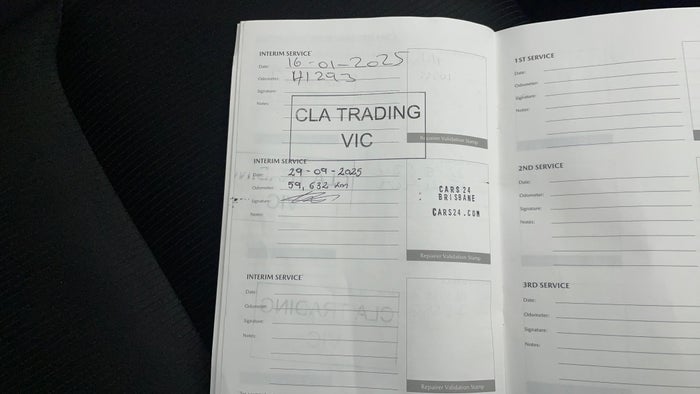 INTERIM SERVICE
Date: 16-01-2025
Odometer: 41293
Signature:
Notes:
CLA TRADING
VIC
Repairer Validation Stamp
INTERIM SERVICE
Date: 29-09-2025
Odometer: 59,632 km
Signature:
Notes:
CARS24
BRISBANE
CARS24.COM
Repairer Validation Stamp
INTERIM SERVICE
Date:
Odometer:
Signature:
Notes:
CLA TRADING
VIC
Repairer Validation Stamp
1ST SERVICE
Date:
Odometer:
Signature:
Notes:
2ND SERVICE
Date:
Odometer:
Signature:
Notes:
3RD SERVICE
Date:
Odometer:
Signature:
Notes: